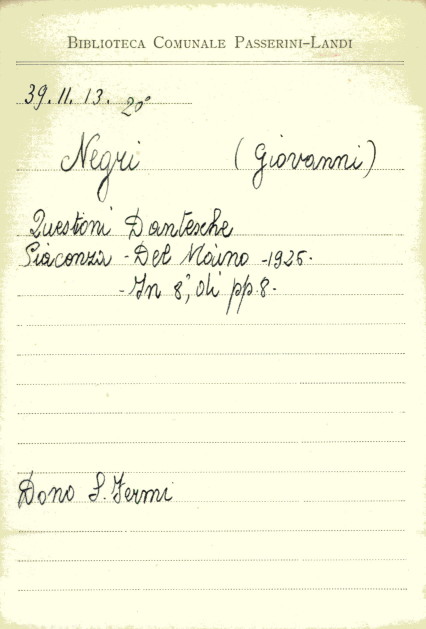 BIBLIOTECA COMUNALE PASSERINI-LANDI
39.II.13. 20°
Negri (Giovanni)
Questioni Dantesche
Piacenza - Del Maino - 1925.
- In 8°, di pp. 8.
Dono S. Fermi